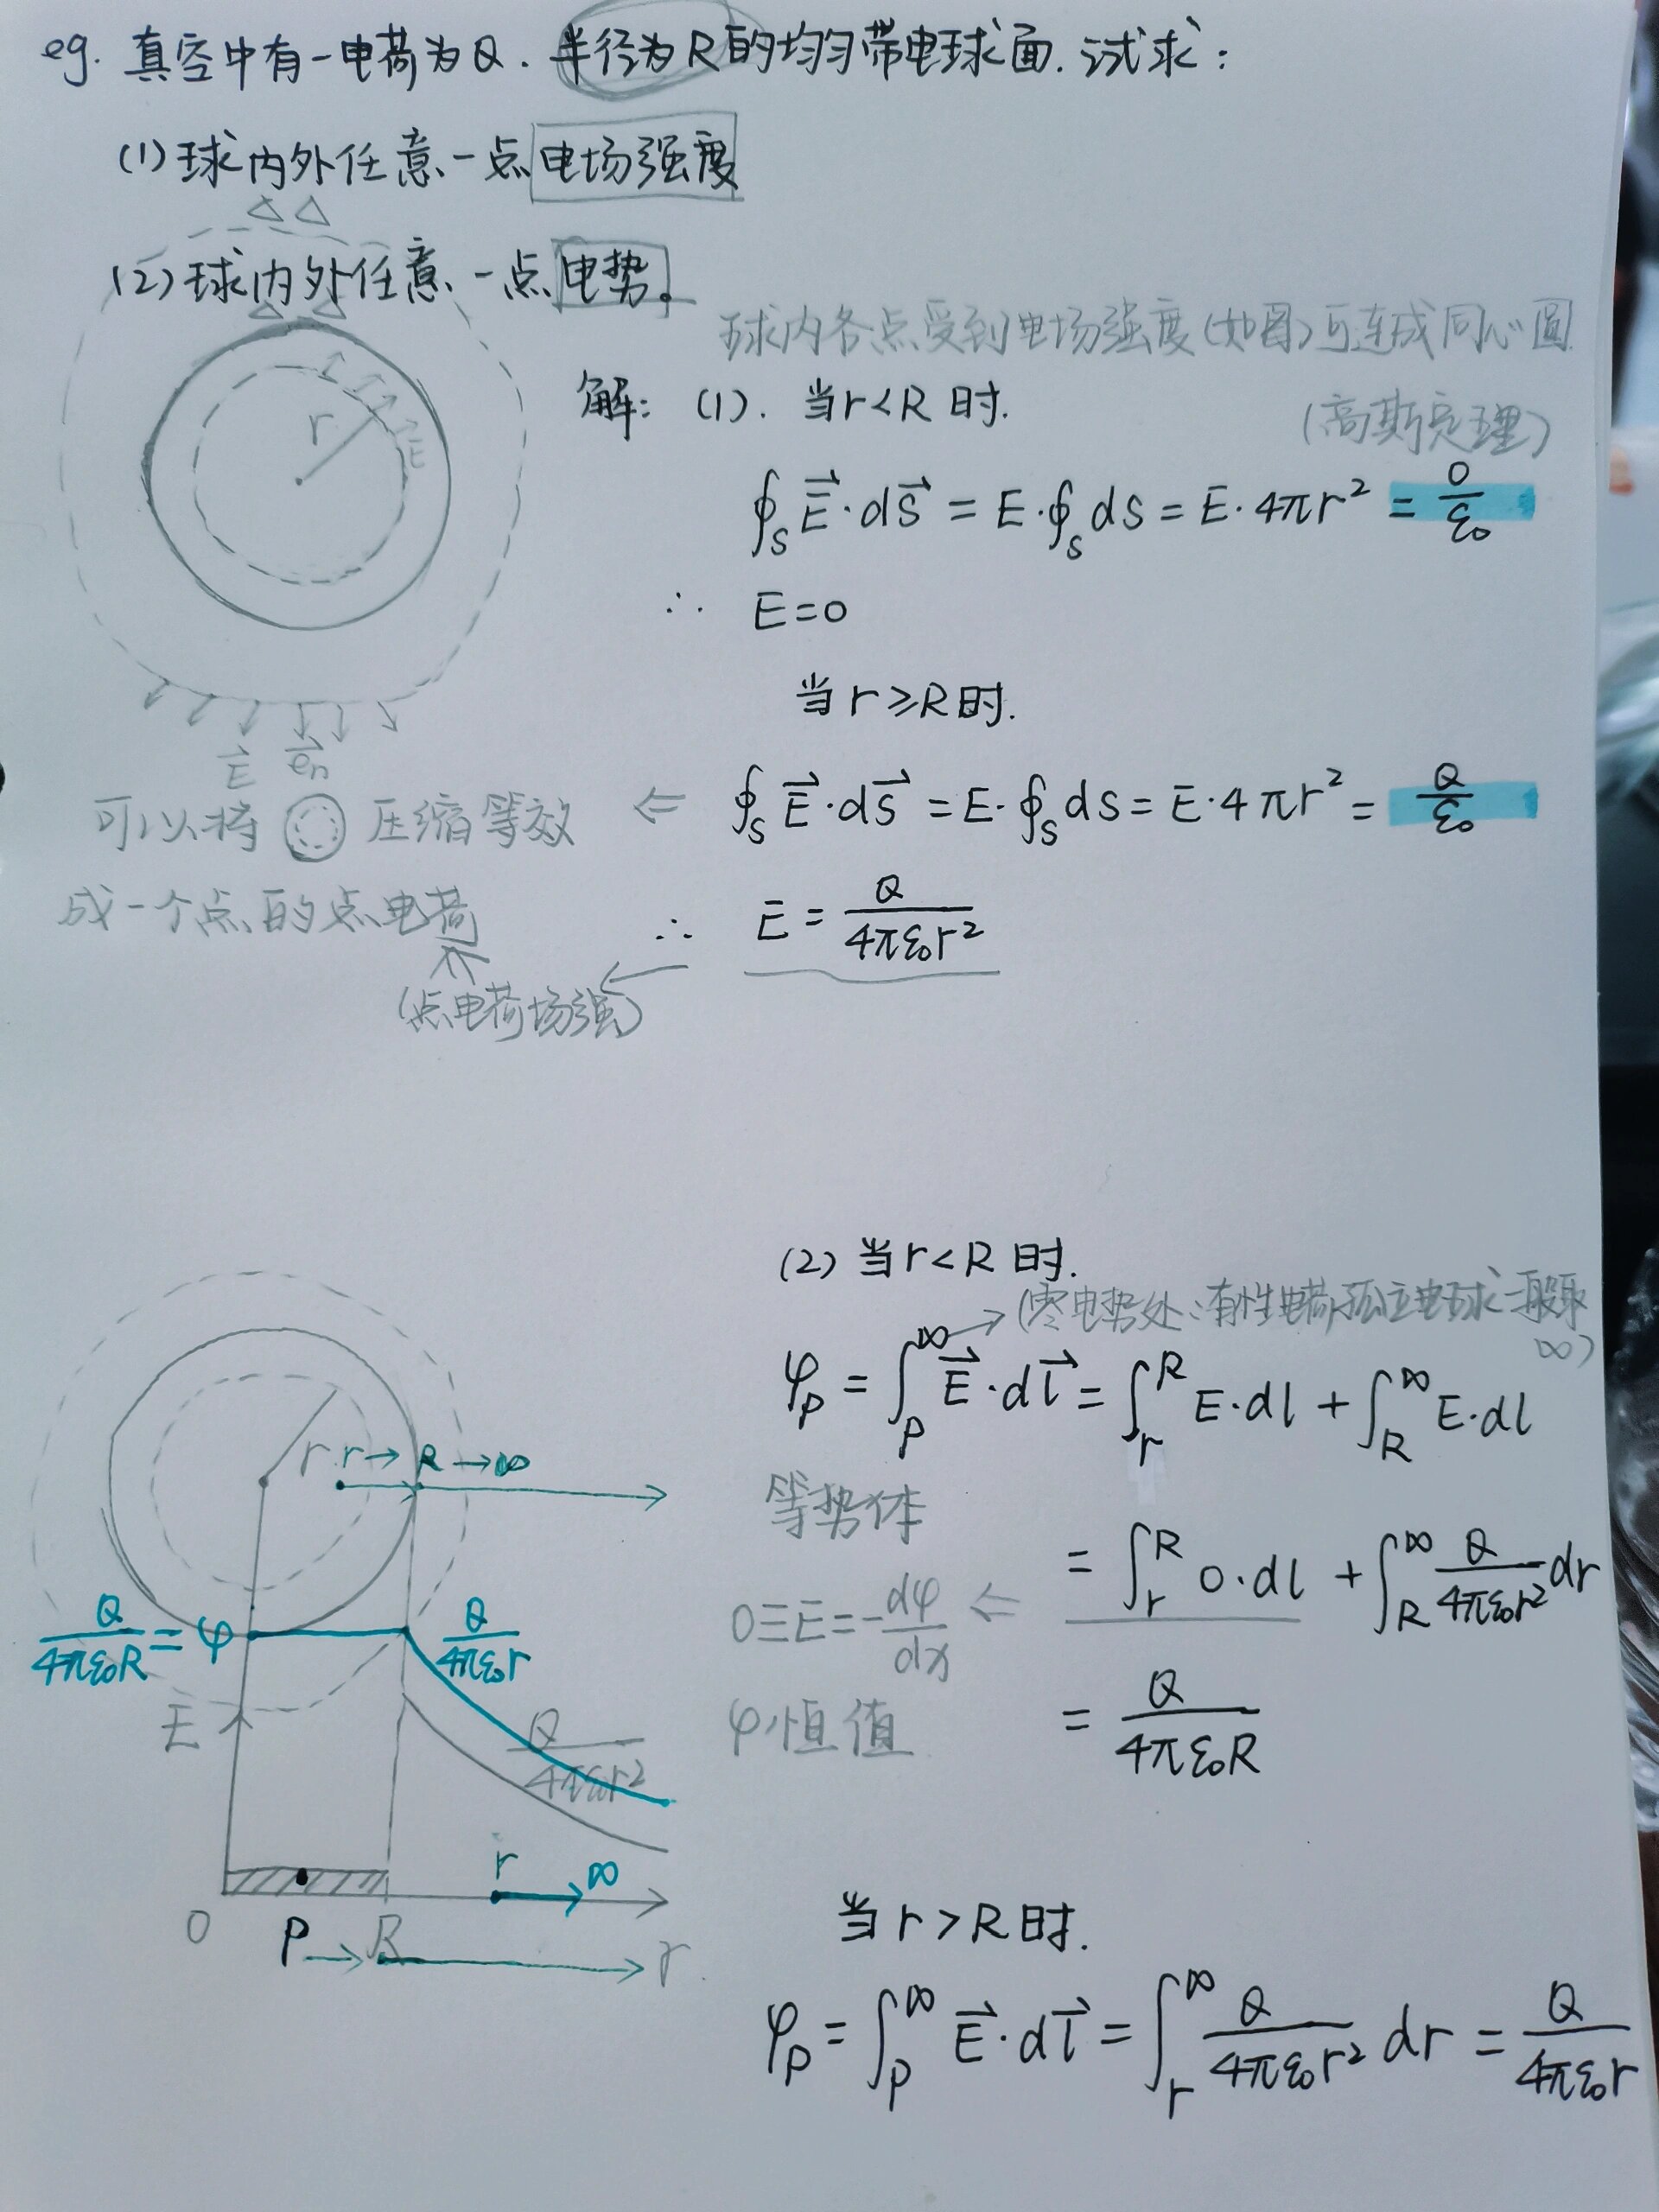 eg. 真空中有一电荷为Q. 半径为R的均匀带电球面. 试求:
(1) 球内外任意一点电场强度
(2) 球内外任意一点电势。
球内各点受到电场强度(如图)可连成同心圆
解: (1). 当r<R时.
(高斯定理)
r
E
∮_S E⃗·dS⃗ = E·∮_S dS = E·4πr² = 0/ε₀
∴ E=0
当r≥R时.
E⃗ e⃗n
∮_S E⃗·dS⃗ = E·∮_S dS = E·4πr² = Q/ε₀
⇐ 可以将 压缩等效
成一个点的点电荷
∴ E = Q/(4πε₀r²)
(点电荷场强)
(2) 当r<R时.
→(零电势处: 电荷孤立电球一般取
∞)
φ_P = ∫_P^∞ E⃗·dl⃗ = ∫_r^R E·dl + ∫_R^∞ E·dl
r r→ R→∞
等势体
= ∫_r^R 0·dl + ∫_R^∞ Q/(4πε₀r²) dr
0≡E=-dφ/dx ⇐
Q/(4πε₀R) = φ
Q/(4πε₀r)
φ恒值
= Q/(4πε₀R)
E
Q/(4πε₀r²)
r ∞
O P→R→r
当r>R时.
φ_P = ∫_P^∞ E⃗·dl⃗ = ∫_r^∞ Q/(4πε₀r²) dr = Q/(4πε₀r)